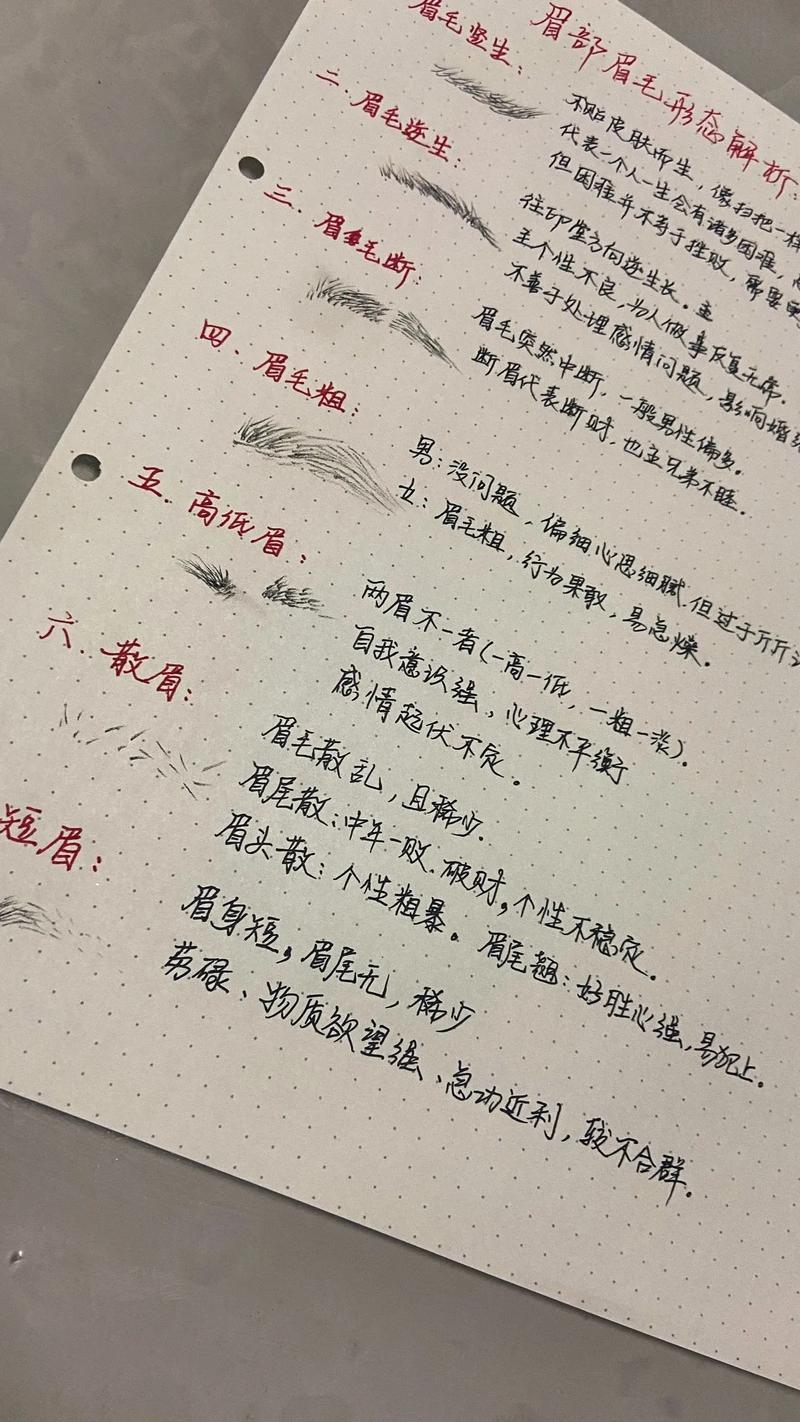 眉部眉毛形态解析:
眉毛竖生:
不贴皮肤而生,像扫把一样
代表一个人一生会有诸多困难,
但困难并不等于挫败,需要
二、眉毛逆生:
往印堂方向逆生长。主
主个性不良,为人做事反复无常。
不善于处理感情问题,影响婚
三、眉毛断:
眉毛突然中断,一般男性偏多。
断眉代表断财,也主兄弟不睦。
四、眉毛粗:
男:没问题,偏细心思细腻.但过于斤斤
女:眉毛粗,行为果敢,易急燥。
五.高低眉:
两眉不一者(一高一低,一粗一淡).
自我意识强、心理不平衡
感情起伏不定。
六.散眉:
眉毛散乱,且稀少.
眉尾散:中年一败.破财,个性不稳定.
眉头散:个性粗暴。眉尾翘:好胜心强,易犯上.
短眉:
眉身短,眉尾无,稀少
劳碌、物质欲望强、急功近利,较不合群.